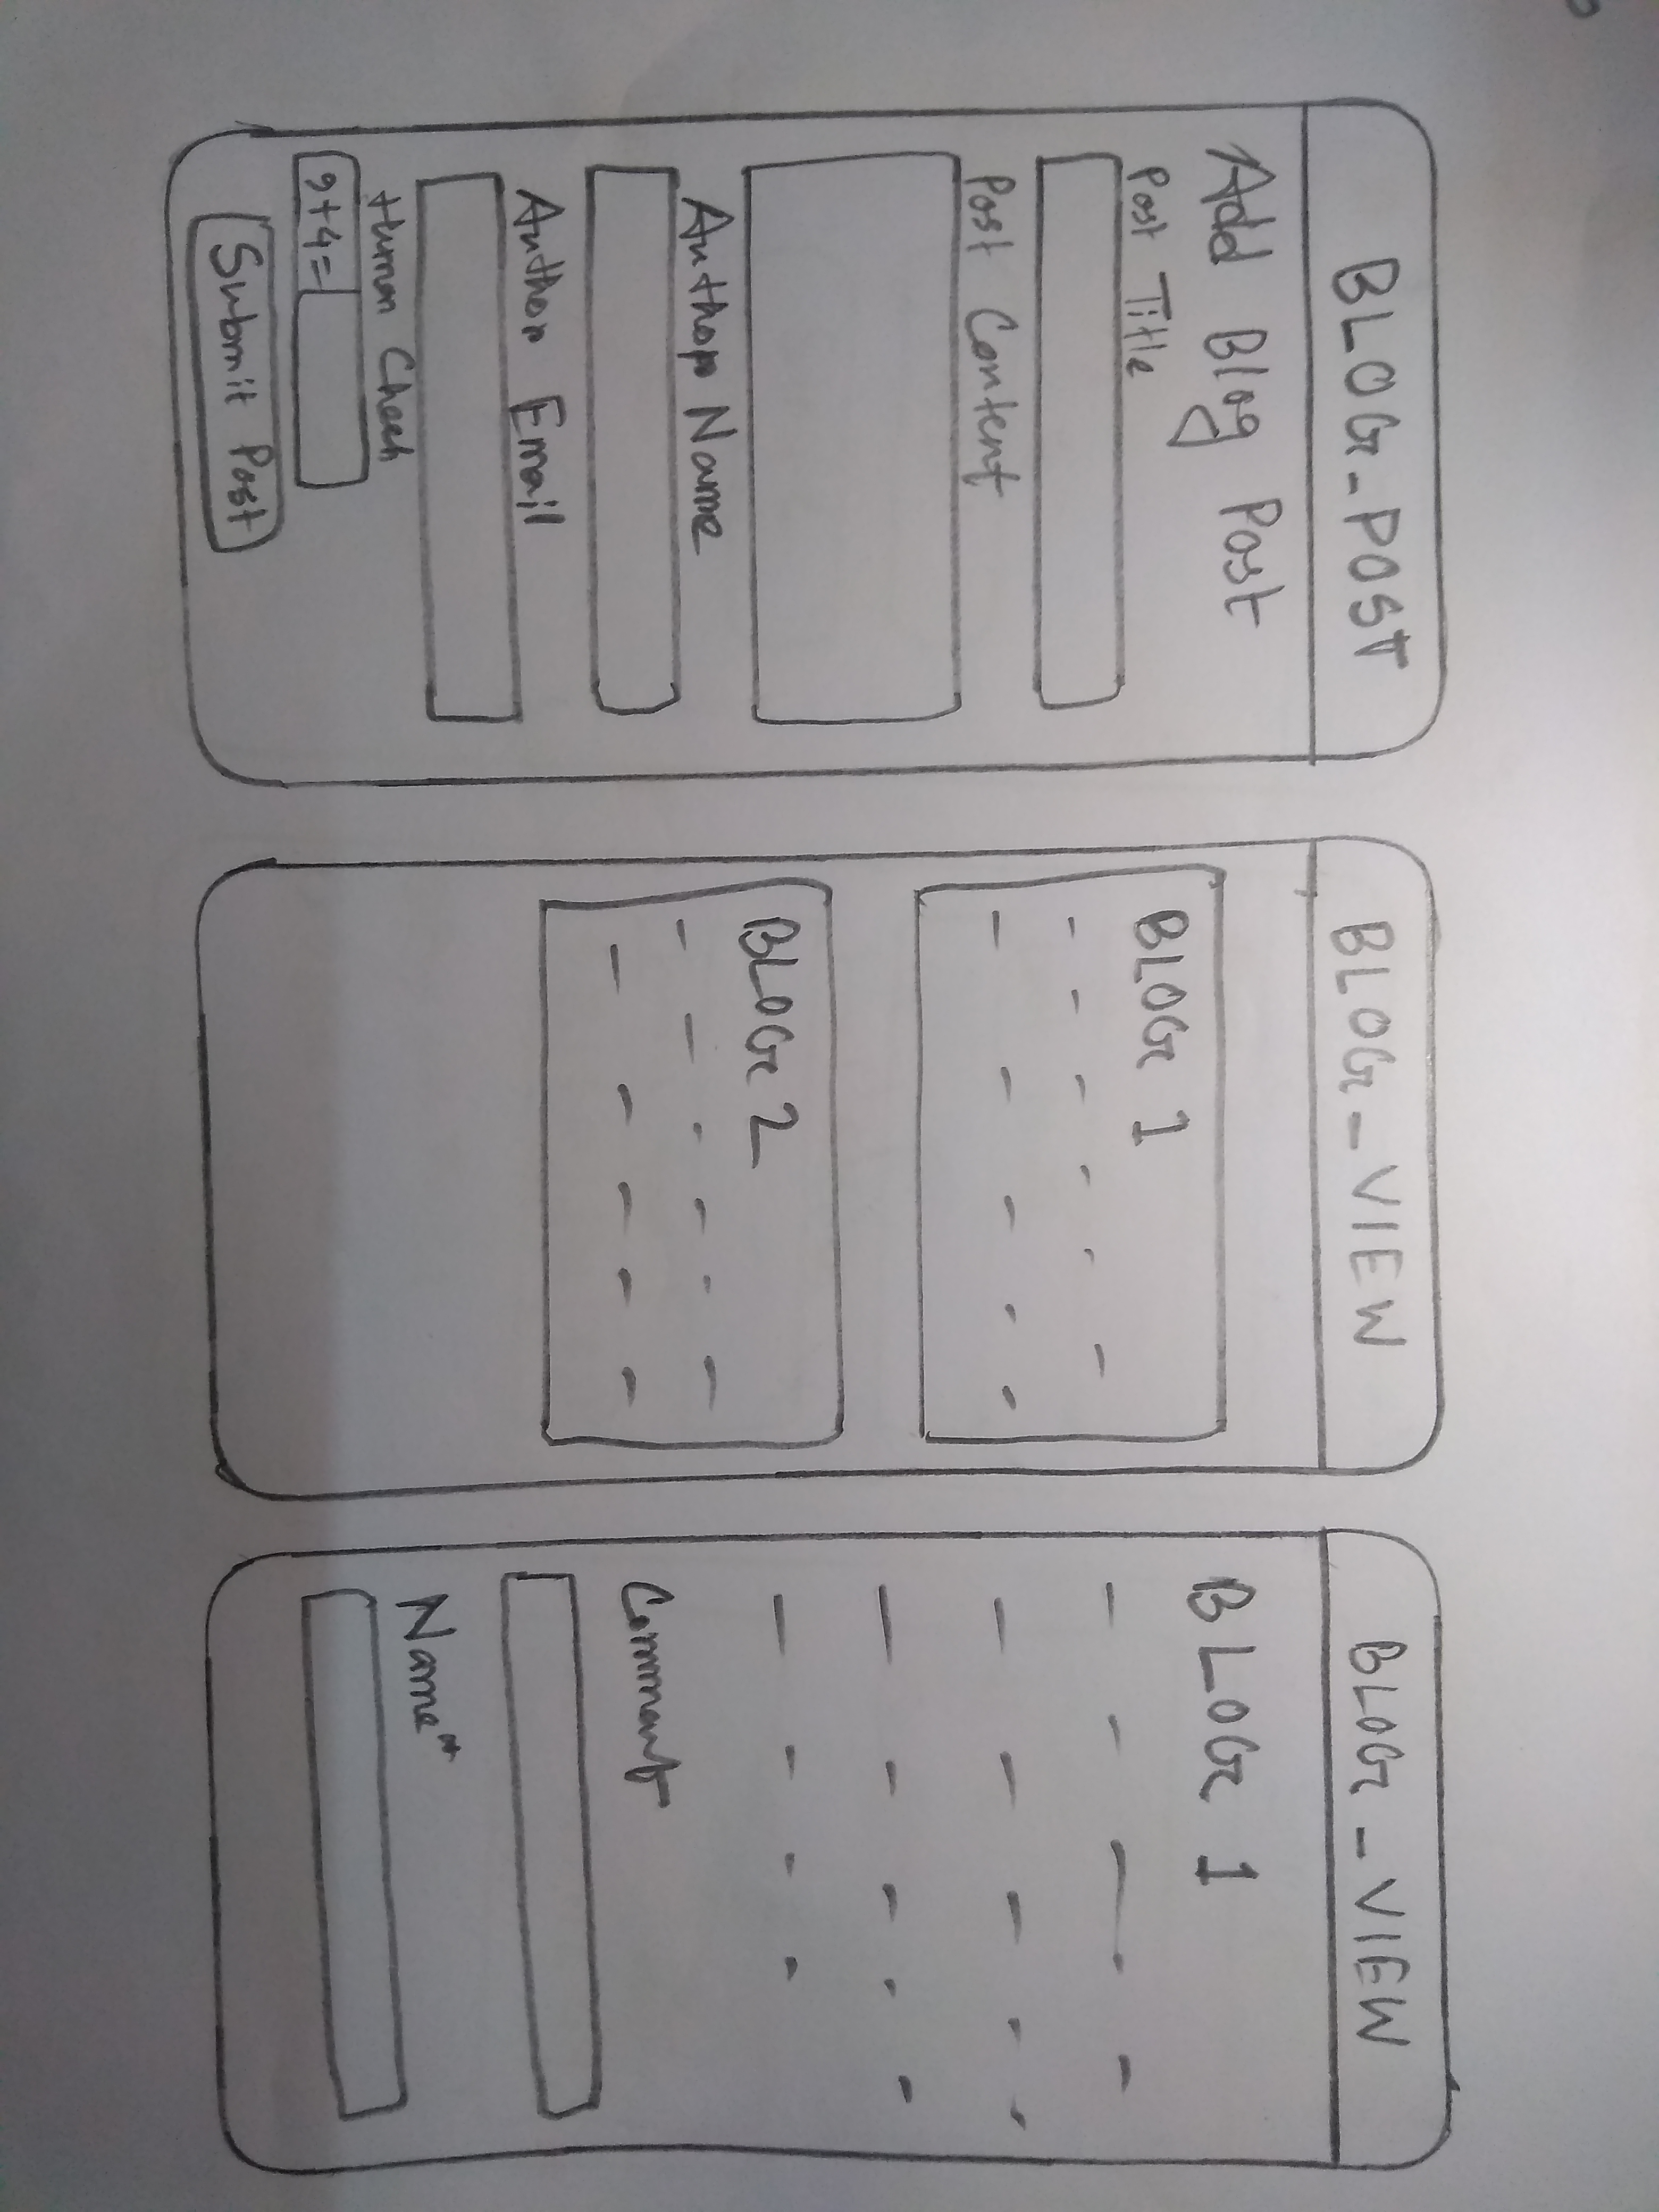 BLOG_POST
Add Blog Post
Post Title
Post Content
Author Name
Author Email
Human Check
9+4=
Submit Post
BLOG_VIEW
BLOG 1
BLOG 2
BLOG_VIEW
BLOG 1
Comment
Name*